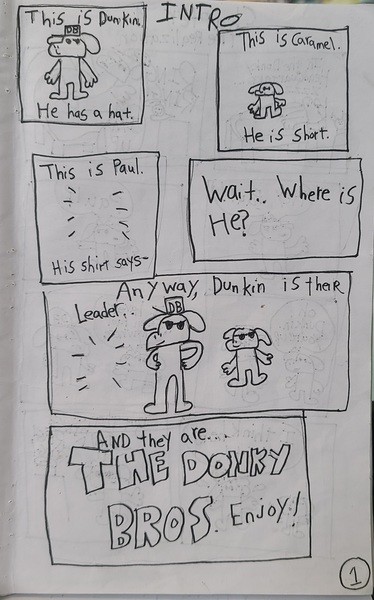 INTRO
This is Dunkin.
DB
He has a hat.
This is Caramel.
He is short.
This is Paul.
His shirt says-
Wait.. Where is
He?
Anyway, Dunkin is their
Leader...
DB
AND they are...
THE DONKY
BROS. Enjoy!
1